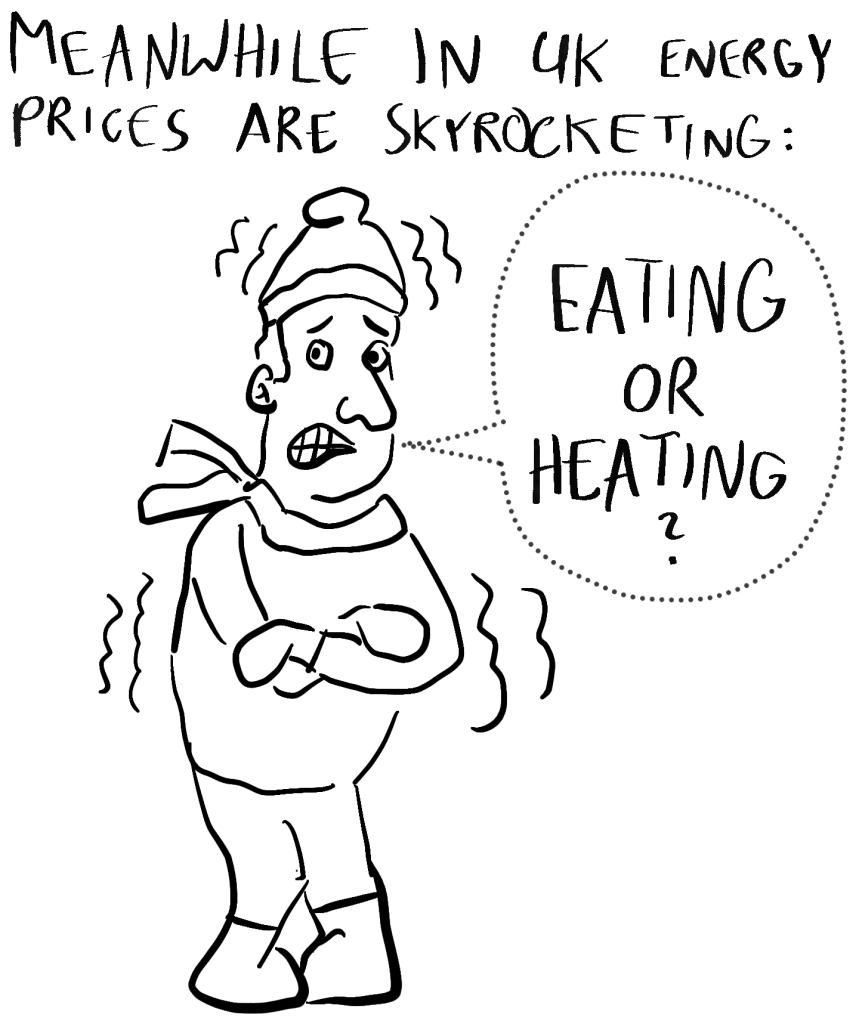 MEANWHILE IN UK ENERGY
PRICES ARE SKYROCKETING:
EATING
OR
HEATING
?